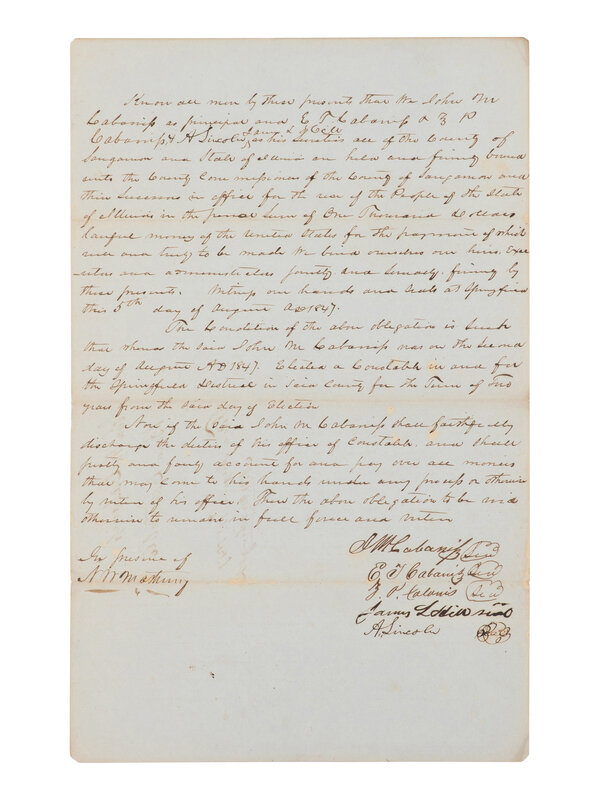 Know all men by these presents that We John M
Cabaniss as principal and E T Cabaniss & Z P
Cabaniss & A Lincoln, James L Hill as his Sureties all of the County of
Sangamon and State of Illinois are held and firmly bound
unto the County Commissioners of the County of Sangamon and
their Successors in office for the use of the People of the State
of Illinois in the penal Sum of One Thousand Dollars
lawful money of the United States for the payment of which
well and truly to be made We bind ourselves our heirs Exe
cutors and administrators jointly and severally firmly by
these presents. Witness our hands and seals at Springfield
this 5th day of August AD 1847.
The Condition of the above obligation is Such
that whereas the said John M Cabaniss was on the Second
day of August AD 1847. Elected a Constable in and for
the Springfield District in Said County for the Term of Two
years from the Said day of Election
Now if the Said John M Cabaniss Shall faithfully
discharge the duties of his office of Constable, and Shall
justly and fairly account for and pay over all monies
that may come to his hands under any process or otherwise
by virtue of his office. Then the above obligation to be void
otherwise to remain in full force and virtue
In presence of
N W Matheny
J M Cabaniss Seal
E T Cabaniss Seal
Z. P. Cabaniss Seal
James L Hill seal
A. Lincoln Seal